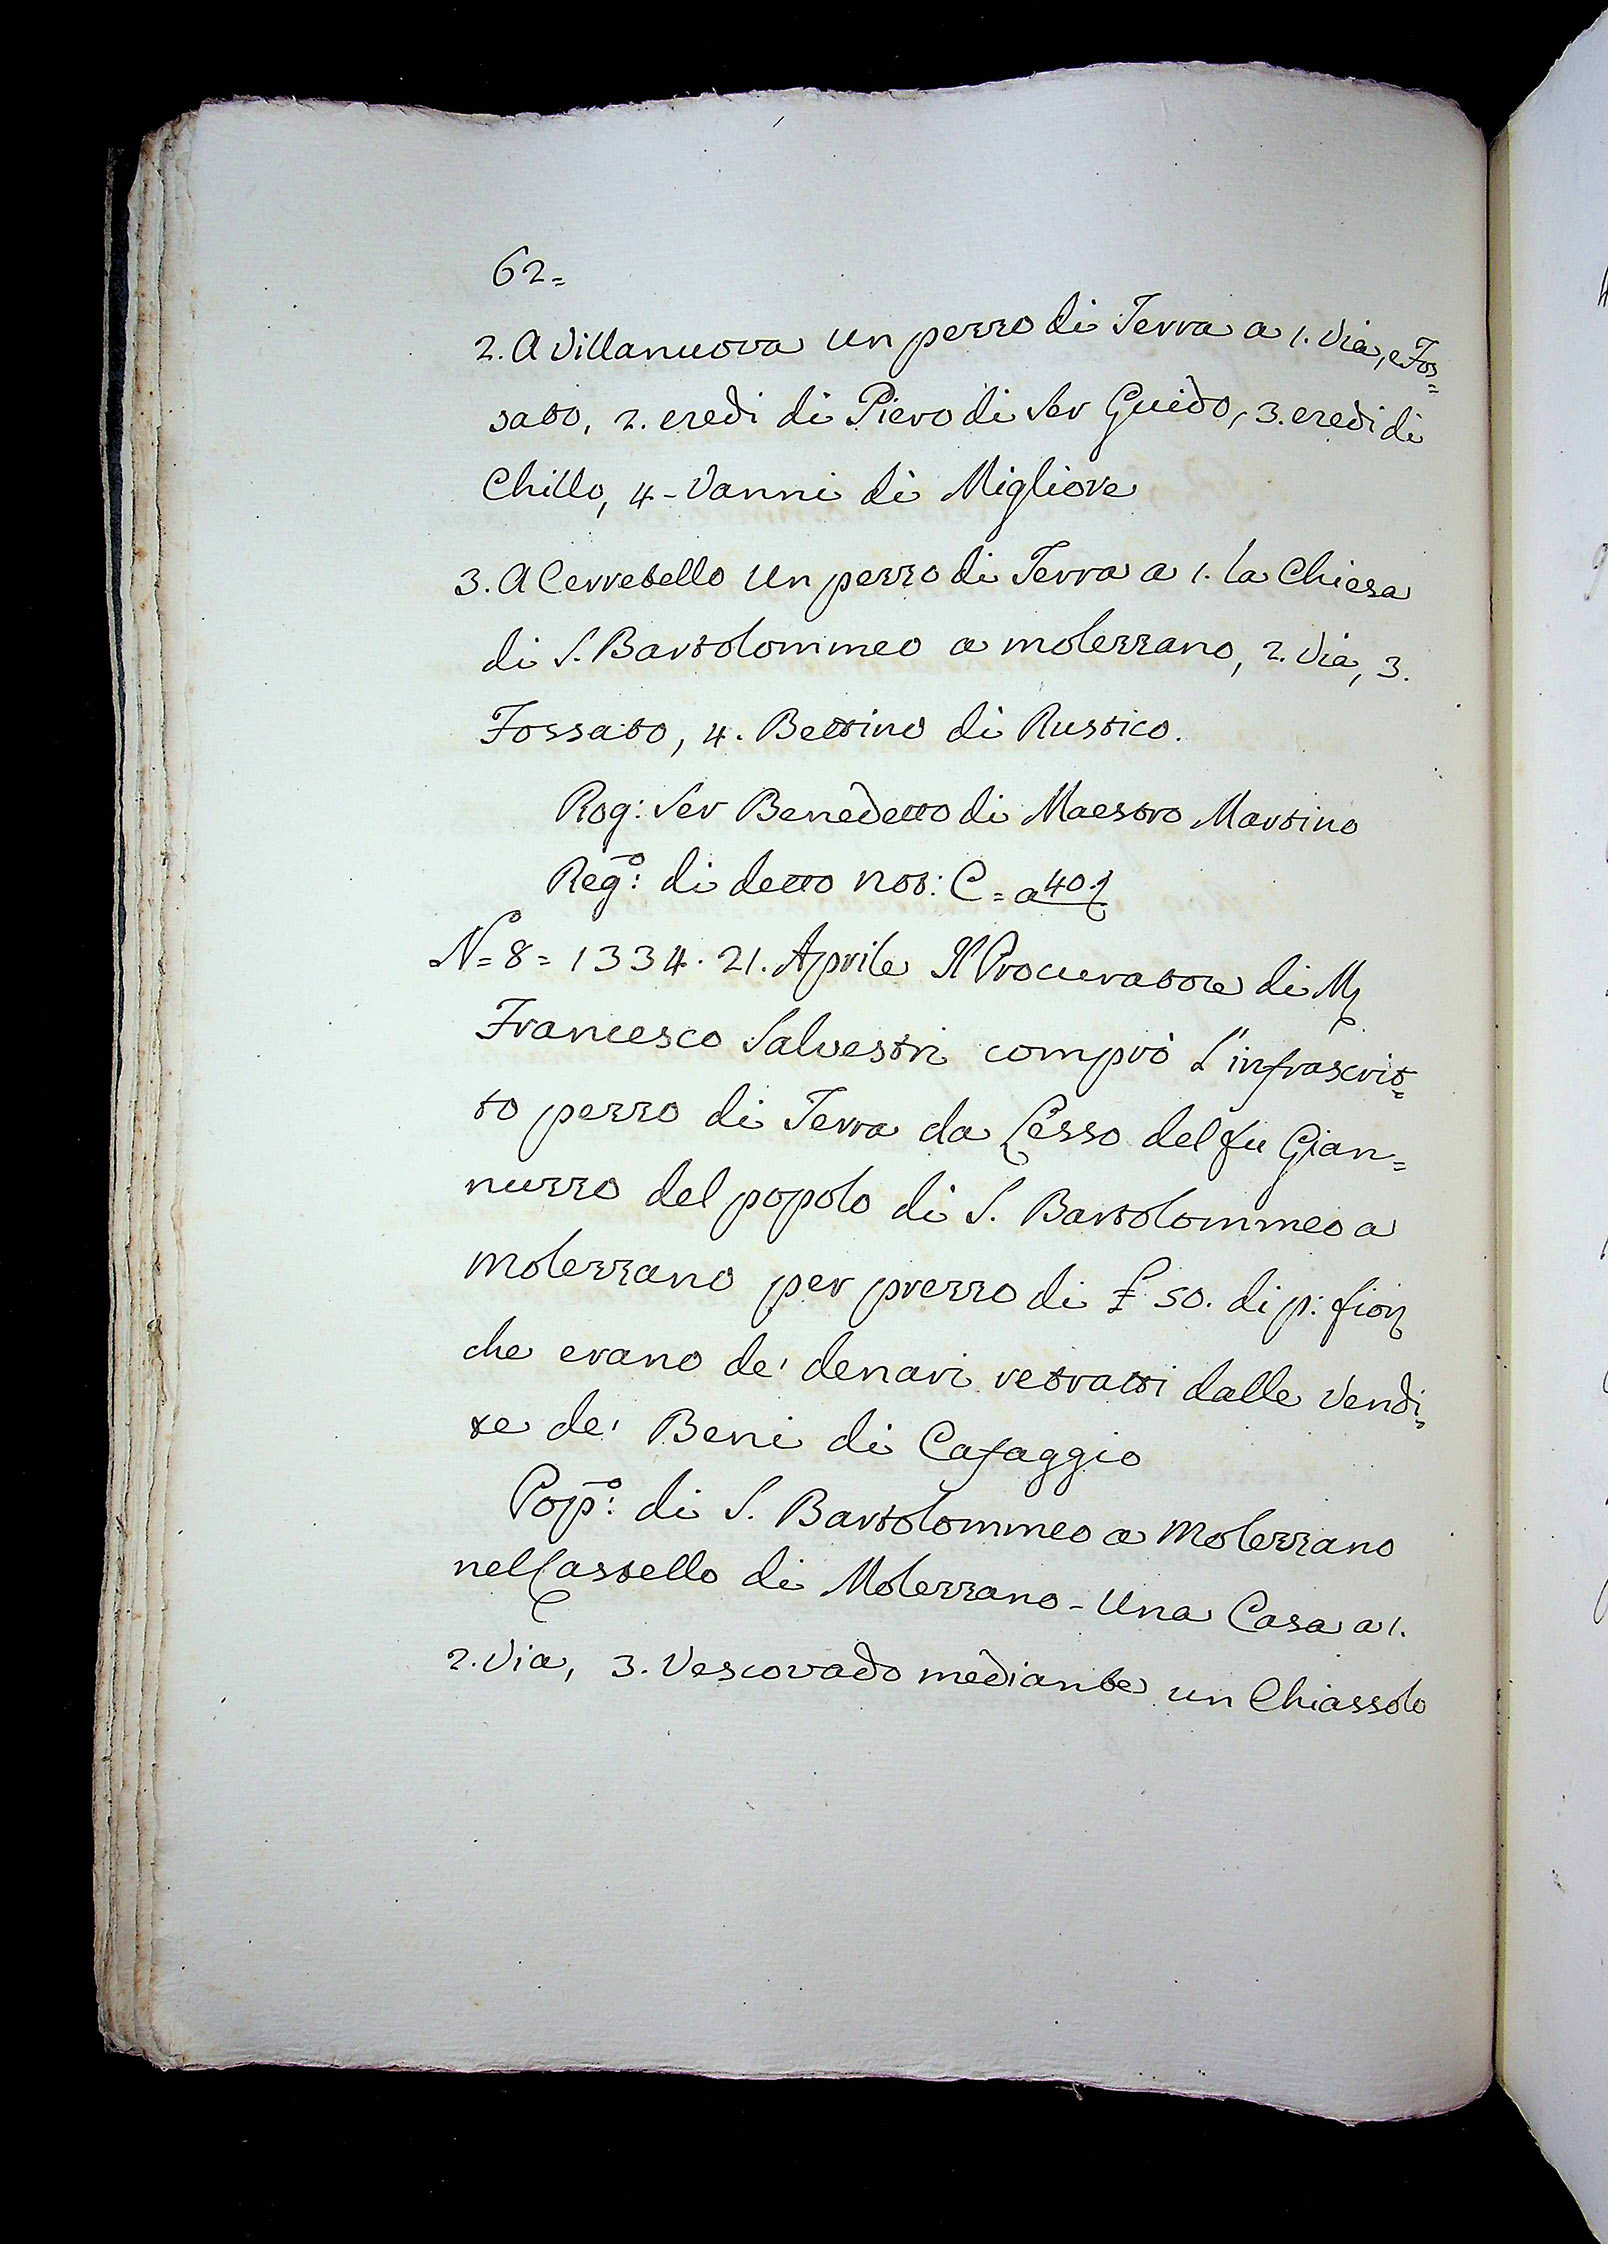 62=
2. A Villanuova un pezzo di Terra a 1. Via, e Fos=
sato, 2. eredi di Piero di Ser Guido, 3. eredi di
Chillo, 4- Vanni di Migliore
3. A Cerretello un pezzo di Terra a 1. la Chiesa
di S. Bartolommeo a molezzano, 2. Via, 3.
Fossato, 4. Bettino di Rustico.
Rog: Ser Benedetto di Maestro Martino
Reg:º di detto not: C= a 40
N= 8= 1334. 21. Aprile Il Procuratore di M
Francesco Salvestri comprò l'infrascrit=
to pezzo di Terra da Cesso del fu Gian=
nuzzo del popolo di S. Bartolommeo a
molezzano per prezzo di £ 50. di p: fior
che erano de' denari retratti dalle Vendi=
te de' Beni di Cafaggio
Pop:º di S. Bartolommeo a Molezzano
nel Castello di Molezzano - Una Casa a 1.
2. Via, 3. Vescovado mediante un Chiassolo